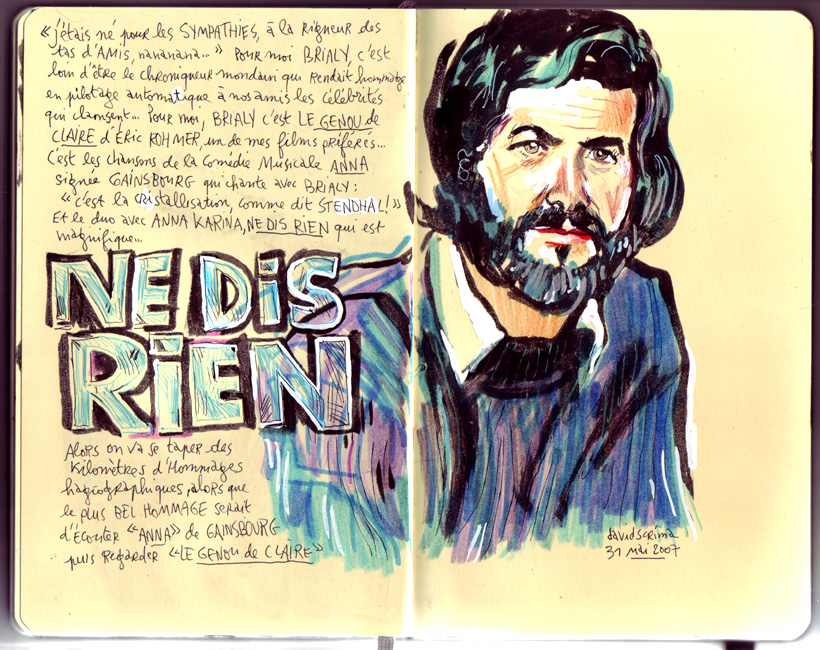 « j'étais né pour les SYMPATHIES, à la Rigueur des
tas d'AMIS, nananana... » Pour moi BRIALY, c'est
loin d'être le chroniqueur mondain qui Rendait hommage
en pilotage automatique à nos amis les célébrités
qui clamsent... Pour moi, BRIALY c'est LE GENOU de
CLAIRE d'ÉRIC ROHMER, un de mes films préférés...
C'est les chansons de la Comédie Musicale ANNA
signée GAINSBOURG qui chante avec BRIALY :
« c'est la cristallisation, comme dit STENDHAL! »
Et le duo avec ANNA KARINA, NE DIS RIEN qui est
magnifique...
NE DIS
RiEN
Alors on va se taper des
Kilomètres d'Hommages
hagiographiques, alors que
le plus BEL HOMMAGE serait
d'Écouter « ANNA » de GAINSBOURG
puis Regarder « LE GENOU de CLAIRE »
davidscrima
31 mai 2007